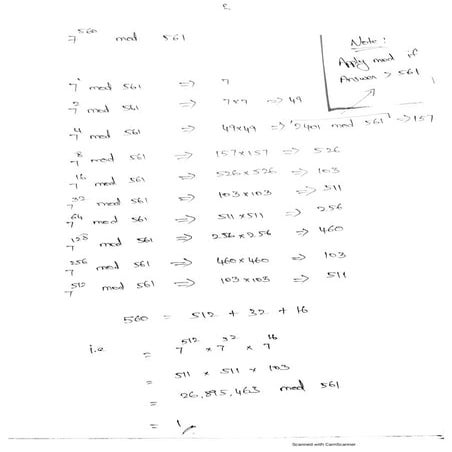 7^560 mod 561
Note :
Apply mod if
Answer > 561
7^1 mod 561 ⇒ 7
7^2 mod 561 ⇒ 7×7 ⇒ 49
7^4 mod 561 ⇒ 49×49 ⇒ 2401 mod 561 ⇒ 157
7^8 mod 561 ⇒ 157×157 ⇒ 526
7^16 mod 561 ⇒ 526×526 ⇒ 103
7^32 mod 561 ⇒ 103×103 ⇒ 511
7^64 mod 561 ⇒ 511×511 ⇒ 256
7^128 mod 561 ⇒ 256×256 ⇒ 460
7^256 mod 561 ⇒ 460×460 ⇒ 103
7^512 mod 561 ⇒ 103×103 ⇒ 511
560 = 512 + 32 + 16
i.e = 7^512 × 7^32 × 7^16
= 511 × 511 × 103
= 26,895,463 mod 561
= 1
Scanned with CamScanner